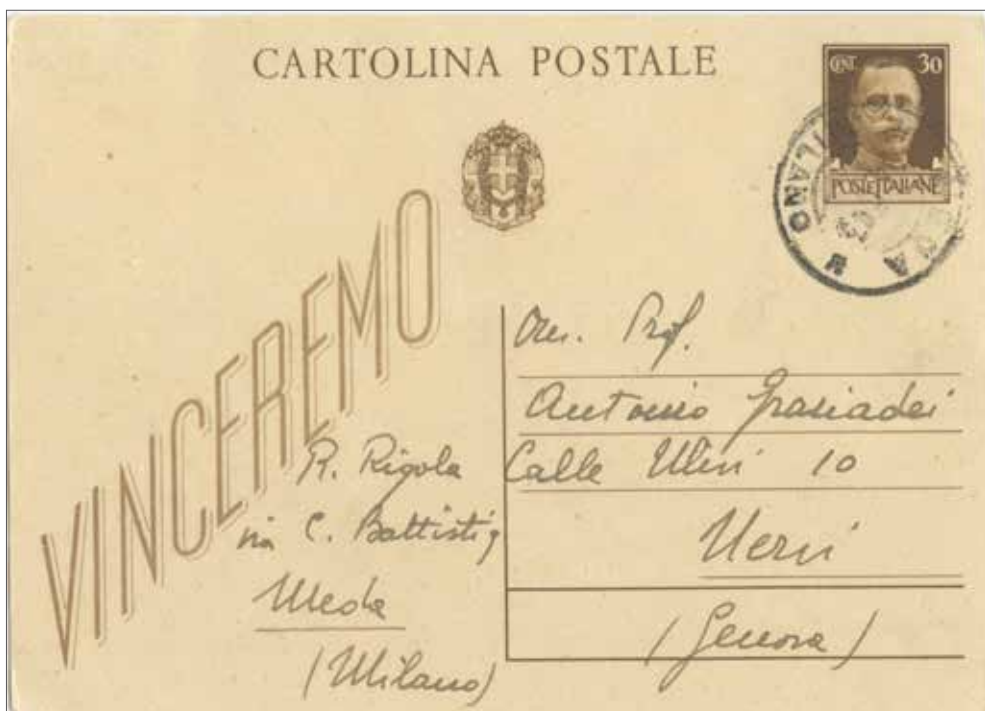 CARTOLINA POSTALE
CENT. 30
POSTE ITALIANE
MILANO
VINCEREMO
On. Prof.
Antonio Graziadei
Calle Ulivi 10
Nervi
(Genova)
R. Rigola
via C. Battisti 9
Meda
(Milano)